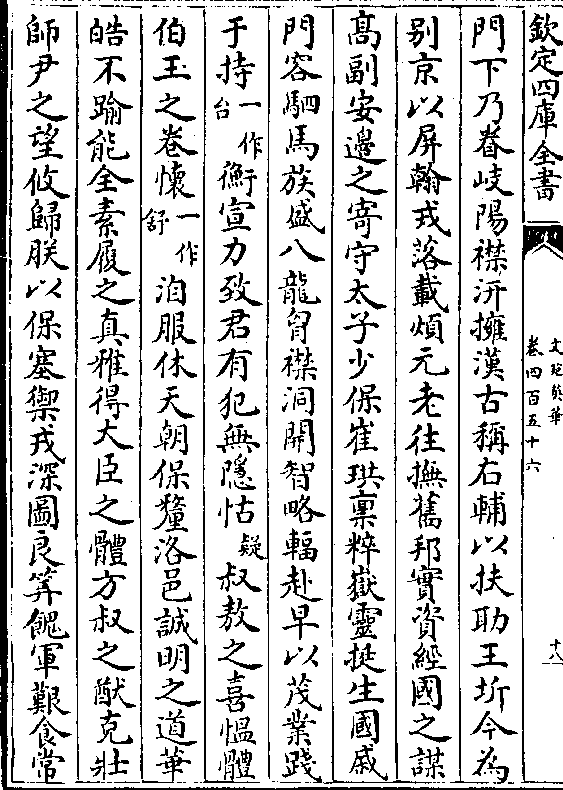 欽定四庫全書
文苑英華
卷四百五十六
十八
門下乃眷岐陽襟汧擁漢古稱右輔以扶助王圻今為
别京以屏翰戎落載煩元老往撫舊邦實資經國之謀
髙副安邊之寄守太子少保崔珙稟粹嶽靈挺生國戚
門容駟馬族盛八龍胷襟洞開智略輻赴早以茂業踐
于持一作台衡宣力致君有犯無隱怙疑叔敖之喜愠體
伯玉之卷懷一作舒洎服休天朝保釐洛邑誠明之道華
皓不踰能全素履之真雅得大臣之體方叔之猷克壯
師尹之望攸歸朕以保塞禦戎深圖良筭餽軍艱食常